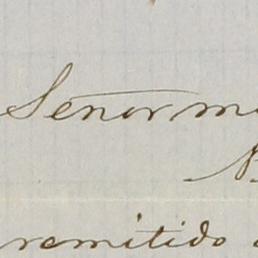 Señor m
N
remitido